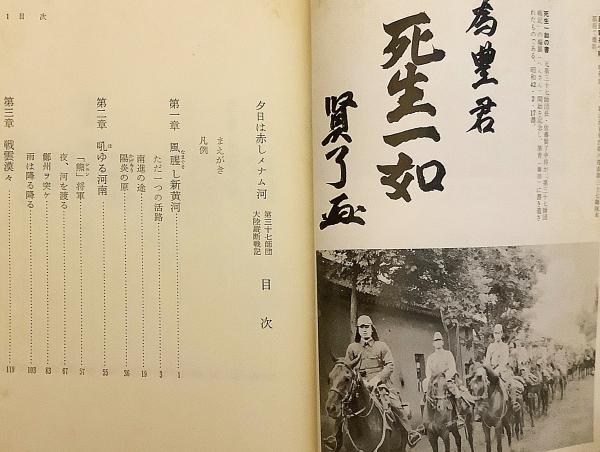 為豊君
死生一如
賢了
死生一如の書
夕日は赤しメナム河
第三十七師団
大陸縦断戦記
目次
まえがき
凡例
第一章 風腥し新黄河 1
ただ一つの活路 3
南進の途 19
陽炎の原 36
第二章 吼ゆる河南 55
「熊」将軍 57
夜、河を渡る 67
鄭州ヲ突ケ 83
雨は降る降る 103
第三章 戦雲漠々 119
1 目次